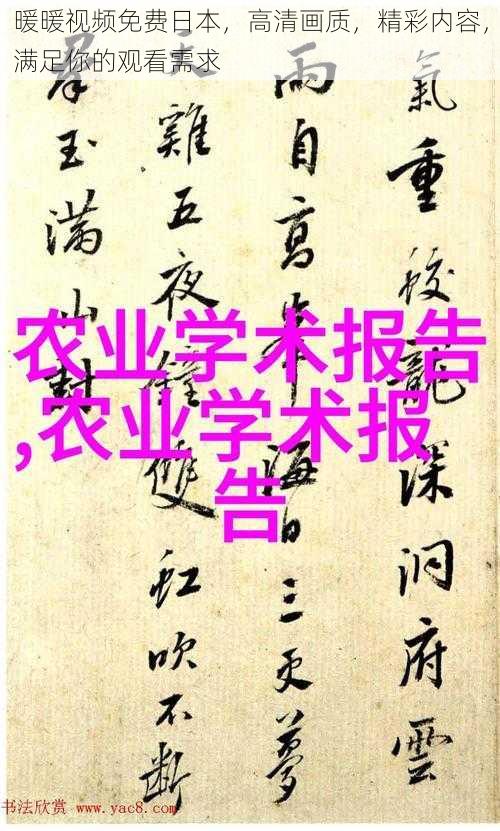 暖暖视频免费日本，高清画质，精彩内容，
满足你的观看需求
农业学术报告
,农业学术报
告
氣重蛟龍深洞府雲
雨自高峯海日三更夢
天雞五夜鐘雙虹吹不斷
羣玉滿山封
书法欣赏 www.yac8.com